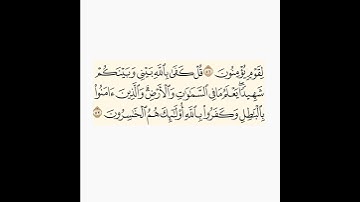 لِقَوْمٍ يُؤْمِنُونَ ۝٥١ قُلْ كَفَىٰ بِٱللَّهِ بَيْنِى وَبَيْنَكُمْ
شَهِيدًا ۖ يَعْلَمُ مَا فِى ٱلسَّمَٰوَٰتِ وَٱلْأَرْضِ ۗ وَٱلَّذِينَ ءَامَنُوا۟
بِٱلْبَٰطِلِ وَكَفَرُوا۟ بِٱللَّهِ أُو۟لَٰٓئِكَ هُمُ ٱلْخَٰسِرُونَ ۝٥٢